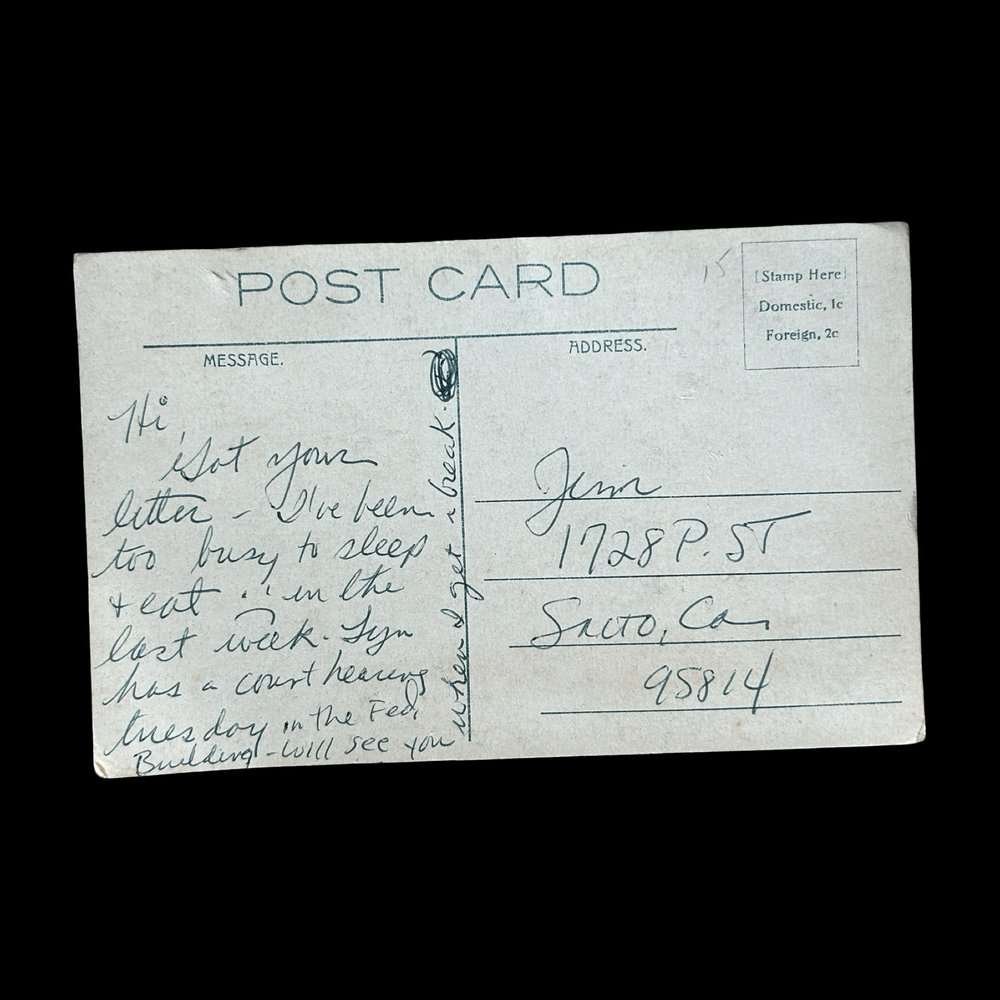 POST CARD
15
Stamp Here
Domestic, 1c
Foreign, 2c
MESSAGE.
ADDRESS.
Hi,
Got your
letter - I've been
too busy to sleep
+ eat .. in the
last week. Lyn
has a court hearing
tuesday in the Fed.
Building - will see you
when I get a break.
Jim
1728 P. ST
Sacto, Ca.
95814